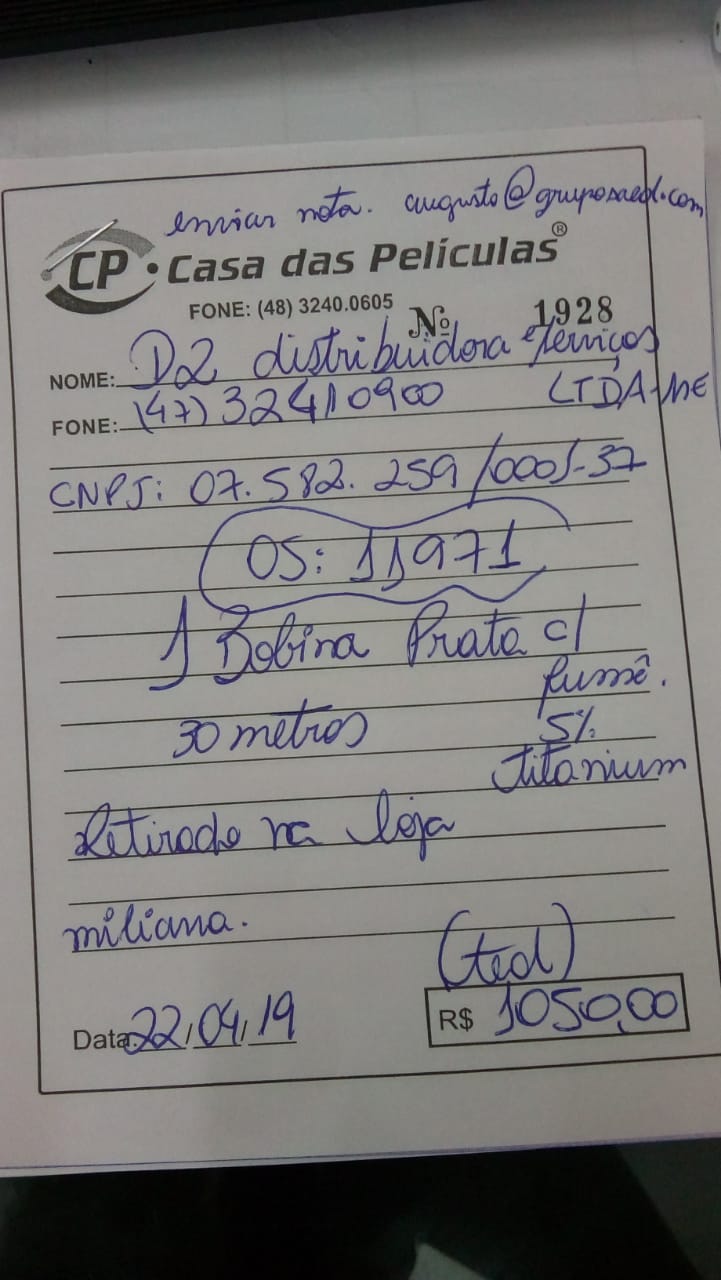 enviar nota. augusto@gruposaed.com
CP · Casa das Películas ®
FONE: (48) 3240.0605
Nº 1928
NOME: D2 distribuidora e serviços
LTDA-ME
FONE: (47) 32410900
CNPJ: 07.582.259/0001-37
OS: 11971
1 Bobina Prata c/
fumê.
30 metros 5%
titanium
Retirado na loja
miliana.
(ted)
Data: 22/04/19 R$ 1050,00